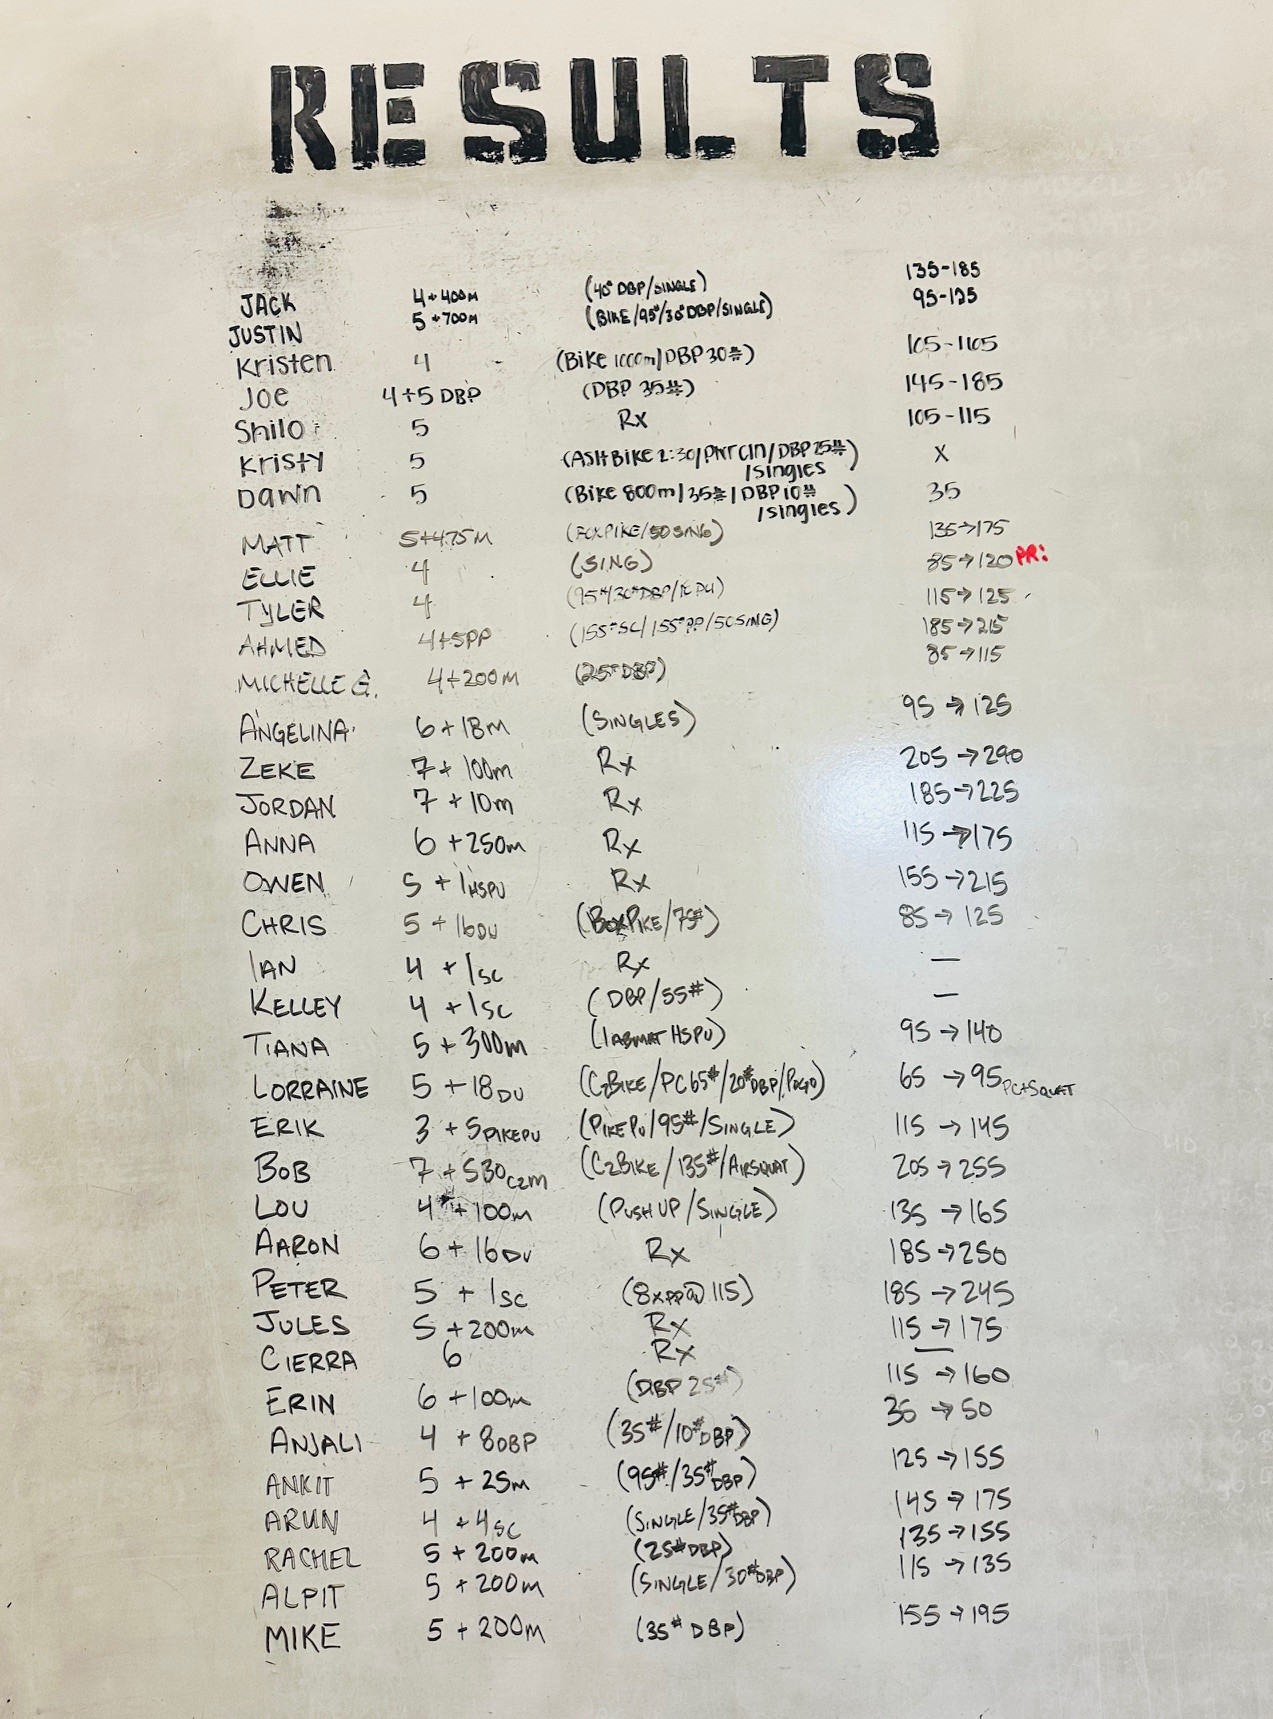 RESULTS
JACK 4+400M (40# DBP/SINGLE) 135-185
JUSTIN 5+700M (BIKE/95#/30# DBP/SINGLE) 95-125
Kristen 4 (Bike 1000m/DBP 30#) 105-1105
Joe 4+5 DBP (DBP 35#) 145-185
Shilo 5 Rx 105-115
Kristy 5 (ASH Bike 2:30/PWR CLN/DBP 25# /singles) X
Dawn 5 (Bike 800m/35#/DBP 10# /singles) 35
MATT 5+475M (BOXPIKE/50 SING) 135→175
ELLIE 4 (SING) 85→120 PR!
TYLER 4 (95#/30#DBP/10 PU) 115→125
AHMED 4+5PP (155#SC/155#PP/50SING) 185→215
MICHELLE G. 4+200M (25# DBP) 85→115
ANGELINA 6+18m (SINGLES) 95→125
ZEKE 7+100m Rx 205→290
JORDAN 7+10m Rx 185→225
ANNA 6+250m Rx 115→175
OWEN 5+1HSPU Rx 155→215
CHRIS 5+16DU (BOXPIKE/75#) 85→125
IAN 4+1SC Rx —
KELLEY 4+1SC (DBP/55#) —
TIANA 5+300m (1ABMAT HSPU) 95→140
LORRAINE 5+18DU (C2BIKE/PC65#/20#DBP/POGO) 65→95 PC+SQUAT
ERIK 3+5PIKEPU (PIKEPU/95#/SINGLE) 115→145
BOB 7+530C2M (C2BIKE/135#/AIRSQUAT) 205→255
LOU 4+100m (PUSH UP/SINGLE) 135→165
AARON 6+16DU Rx 185→250
PETER 5+1SC (8xPP@115) 185→245
JULES 5+200m Rx 115→175
CIERRA 6 Rx —
ERIN 6+100m (DBP 25#) 115→160
ANJALI 4+8DBP (35#/10#DBP) 35→50
ANKIT 5+25m (95#/35#DBP) 125→155
ARUN 4+4SC (SINGLE/35#DBP) 145→175
RACHEL 5+200m (25#DBP) 135→155
ALPIT 5+200m (SINGLE/30#DBP) 115→135
MIKE 5+200m (35# DBP) 155→195